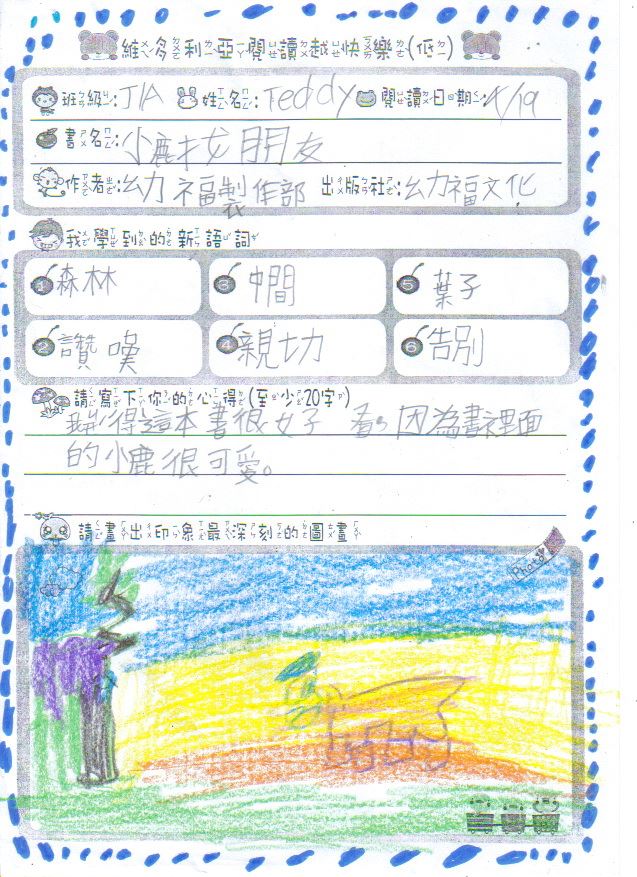 維多利亞閱讀越快樂(低)
班級:J1A 姓名:Teddy 閱讀日期:4/19
書名:小鹿找朋友
作者:幼福製作部 出版社:幼福文化
我學到的新語詞
1 森林 3 中間 5 葉子
2 讚嘆 4 親切 6 告別
請寫下你的心得(至少20字)
我覺得這本書很好看。因為書裡面
的小鹿很可愛。
請畫出印象最深刻的圖畫
Photo